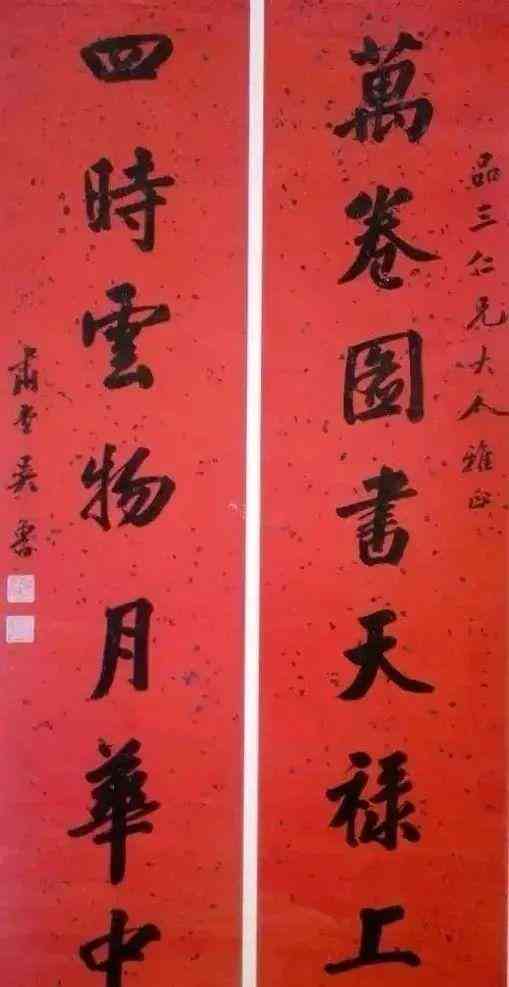 品三仁兄大人雅正
萬卷圖書天禄上
四時雲物月華中
肅堂吳魯